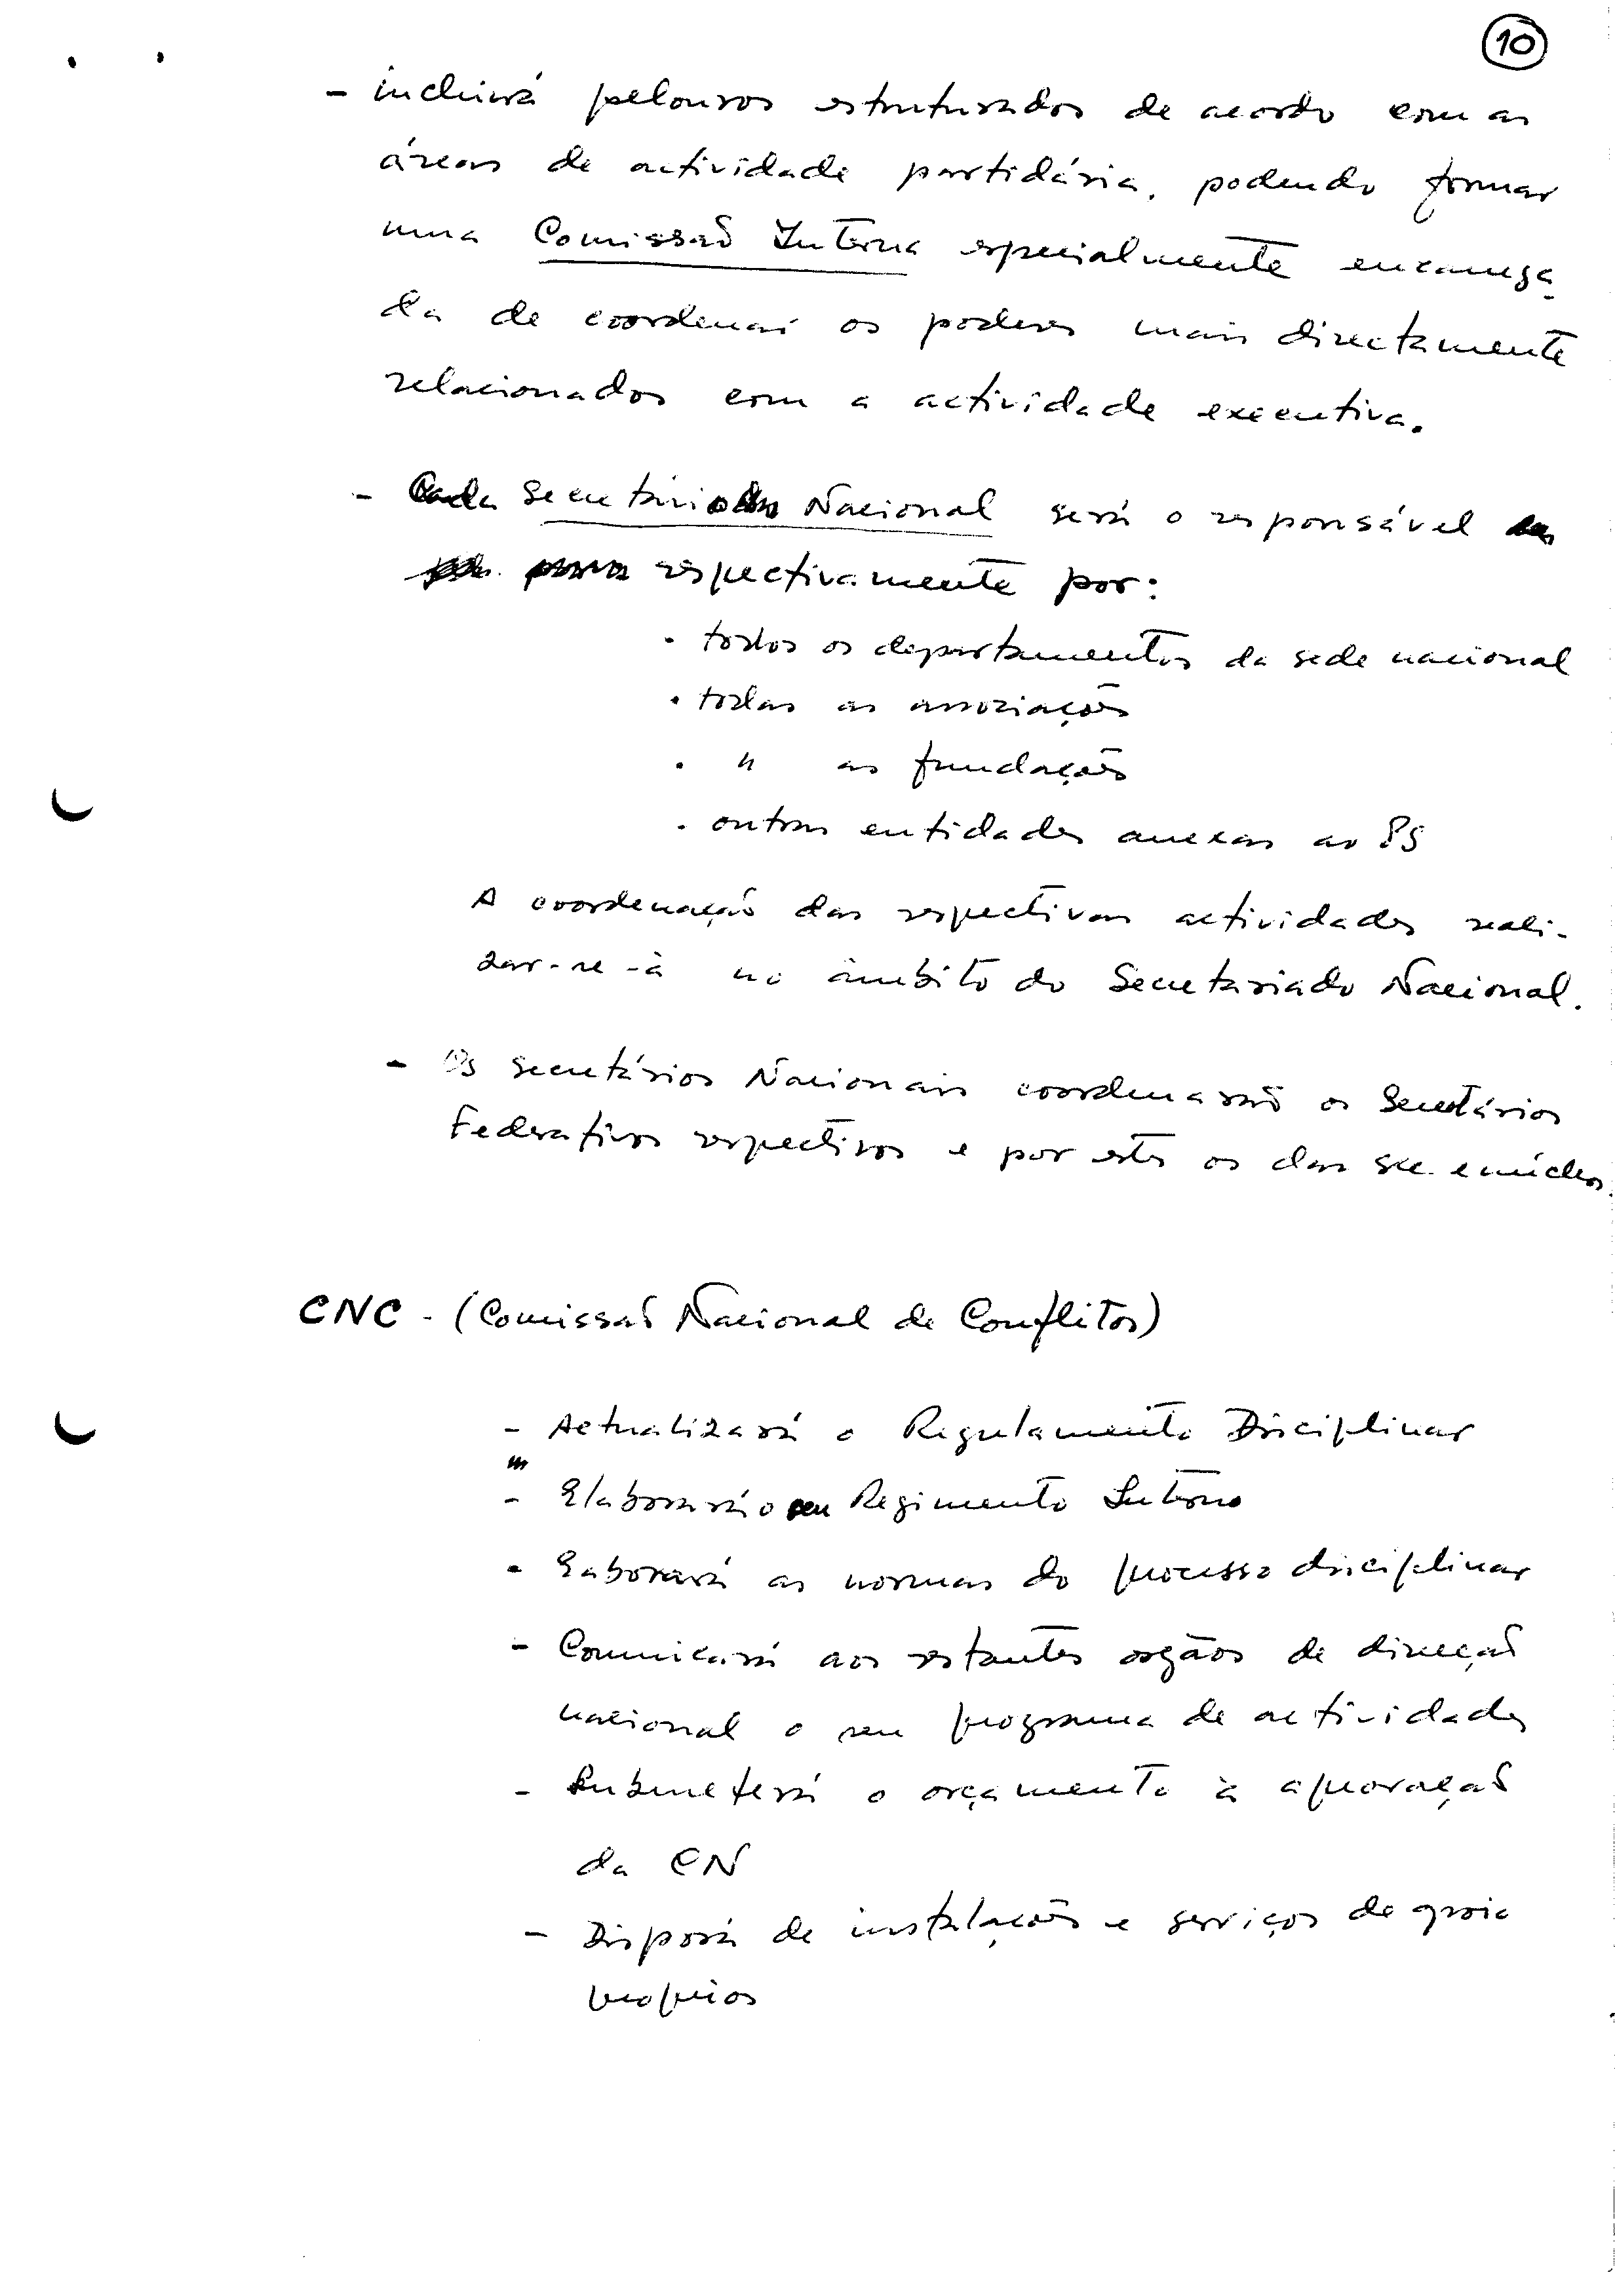 10
- incluirá pelouros estruturados de acordo com as
áreas de actividade partidária, podendo formar
uma Comissão Interna especialmente encarrega
da de coordenar os poderes mais directamente
relacionados com a actividade executiva.
- Cada Secretário Nacional será o responsável
respectivamente por:
. todos os departamentos da sede nacional
. todas as associações
. " as fundações
. outras entidades anexas ao PS
A coordenação das respectivas actividades reali-
zar-se-à no âmbito do Secretariado Nacional.
- Os secretários Nacionais coordenarão os Secretários
Federativos respectivos e por estes os das sec. e núcleos.
CNC - (Comissão Nacional de Conflitos)
- Actualizará o Regulamento Disciplinar
- Elaborará o seu Regimento Interno
- Eaborará as normas do processo disciplinar
- Comunicará aos restantes orgãos de direcção
nacional o seu programa de actividades
- Submeterá o orçamento à aprovação
da CN
- Disporá de instalações e serviços de apoio
próprios